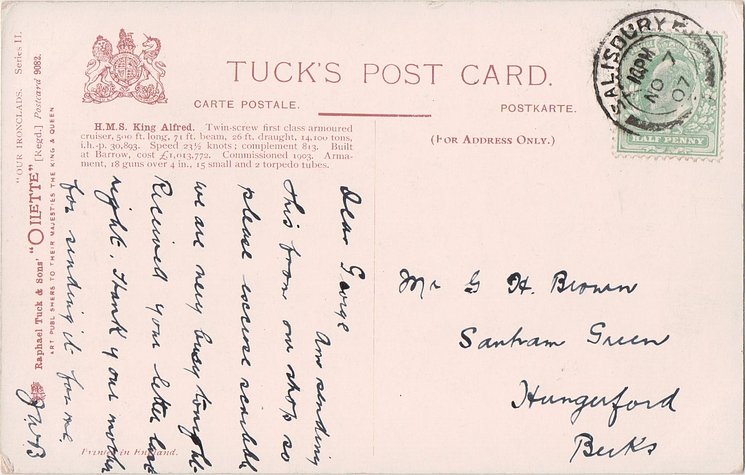 "OUR IRONCLADS. Series II.
Raphael Tuck & Sons' "OILETTE" [Regd.] Postcard 9082.
ART PUBLISHERS TO THEIR MAJESTIES THE KING & QUEEN
TUCK'S POST CARD.
CARTE POSTALE.
POSTKARTE.
(FOR ADDRESS ONLY.)
H.M.S. King Alfred. Twin-screw first class armoured
cruiser, 500 ft. long, 71 ft. beam, 26 ft. draught, 14,100 tons,
i.h.-p. 30,893. Speed 23½ knots; complement 813. Built
at Barrow, cost £1,013,772. Commissioned 1903. Arma-
ment, 18 guns over 4 in., 15 small and 2 torpedo tubes.
SALISBURY
10 PM
NO 7
07
HALF PENNY
Dear George
Am sending
this from our shop so
please excuse scribble
we are very busy tonight
Received your letter last
night. Thank your mother
for sending it for me
JWB
Mr G H. Brown
Sanham Green
Hungerford
Berks
Printed in England.